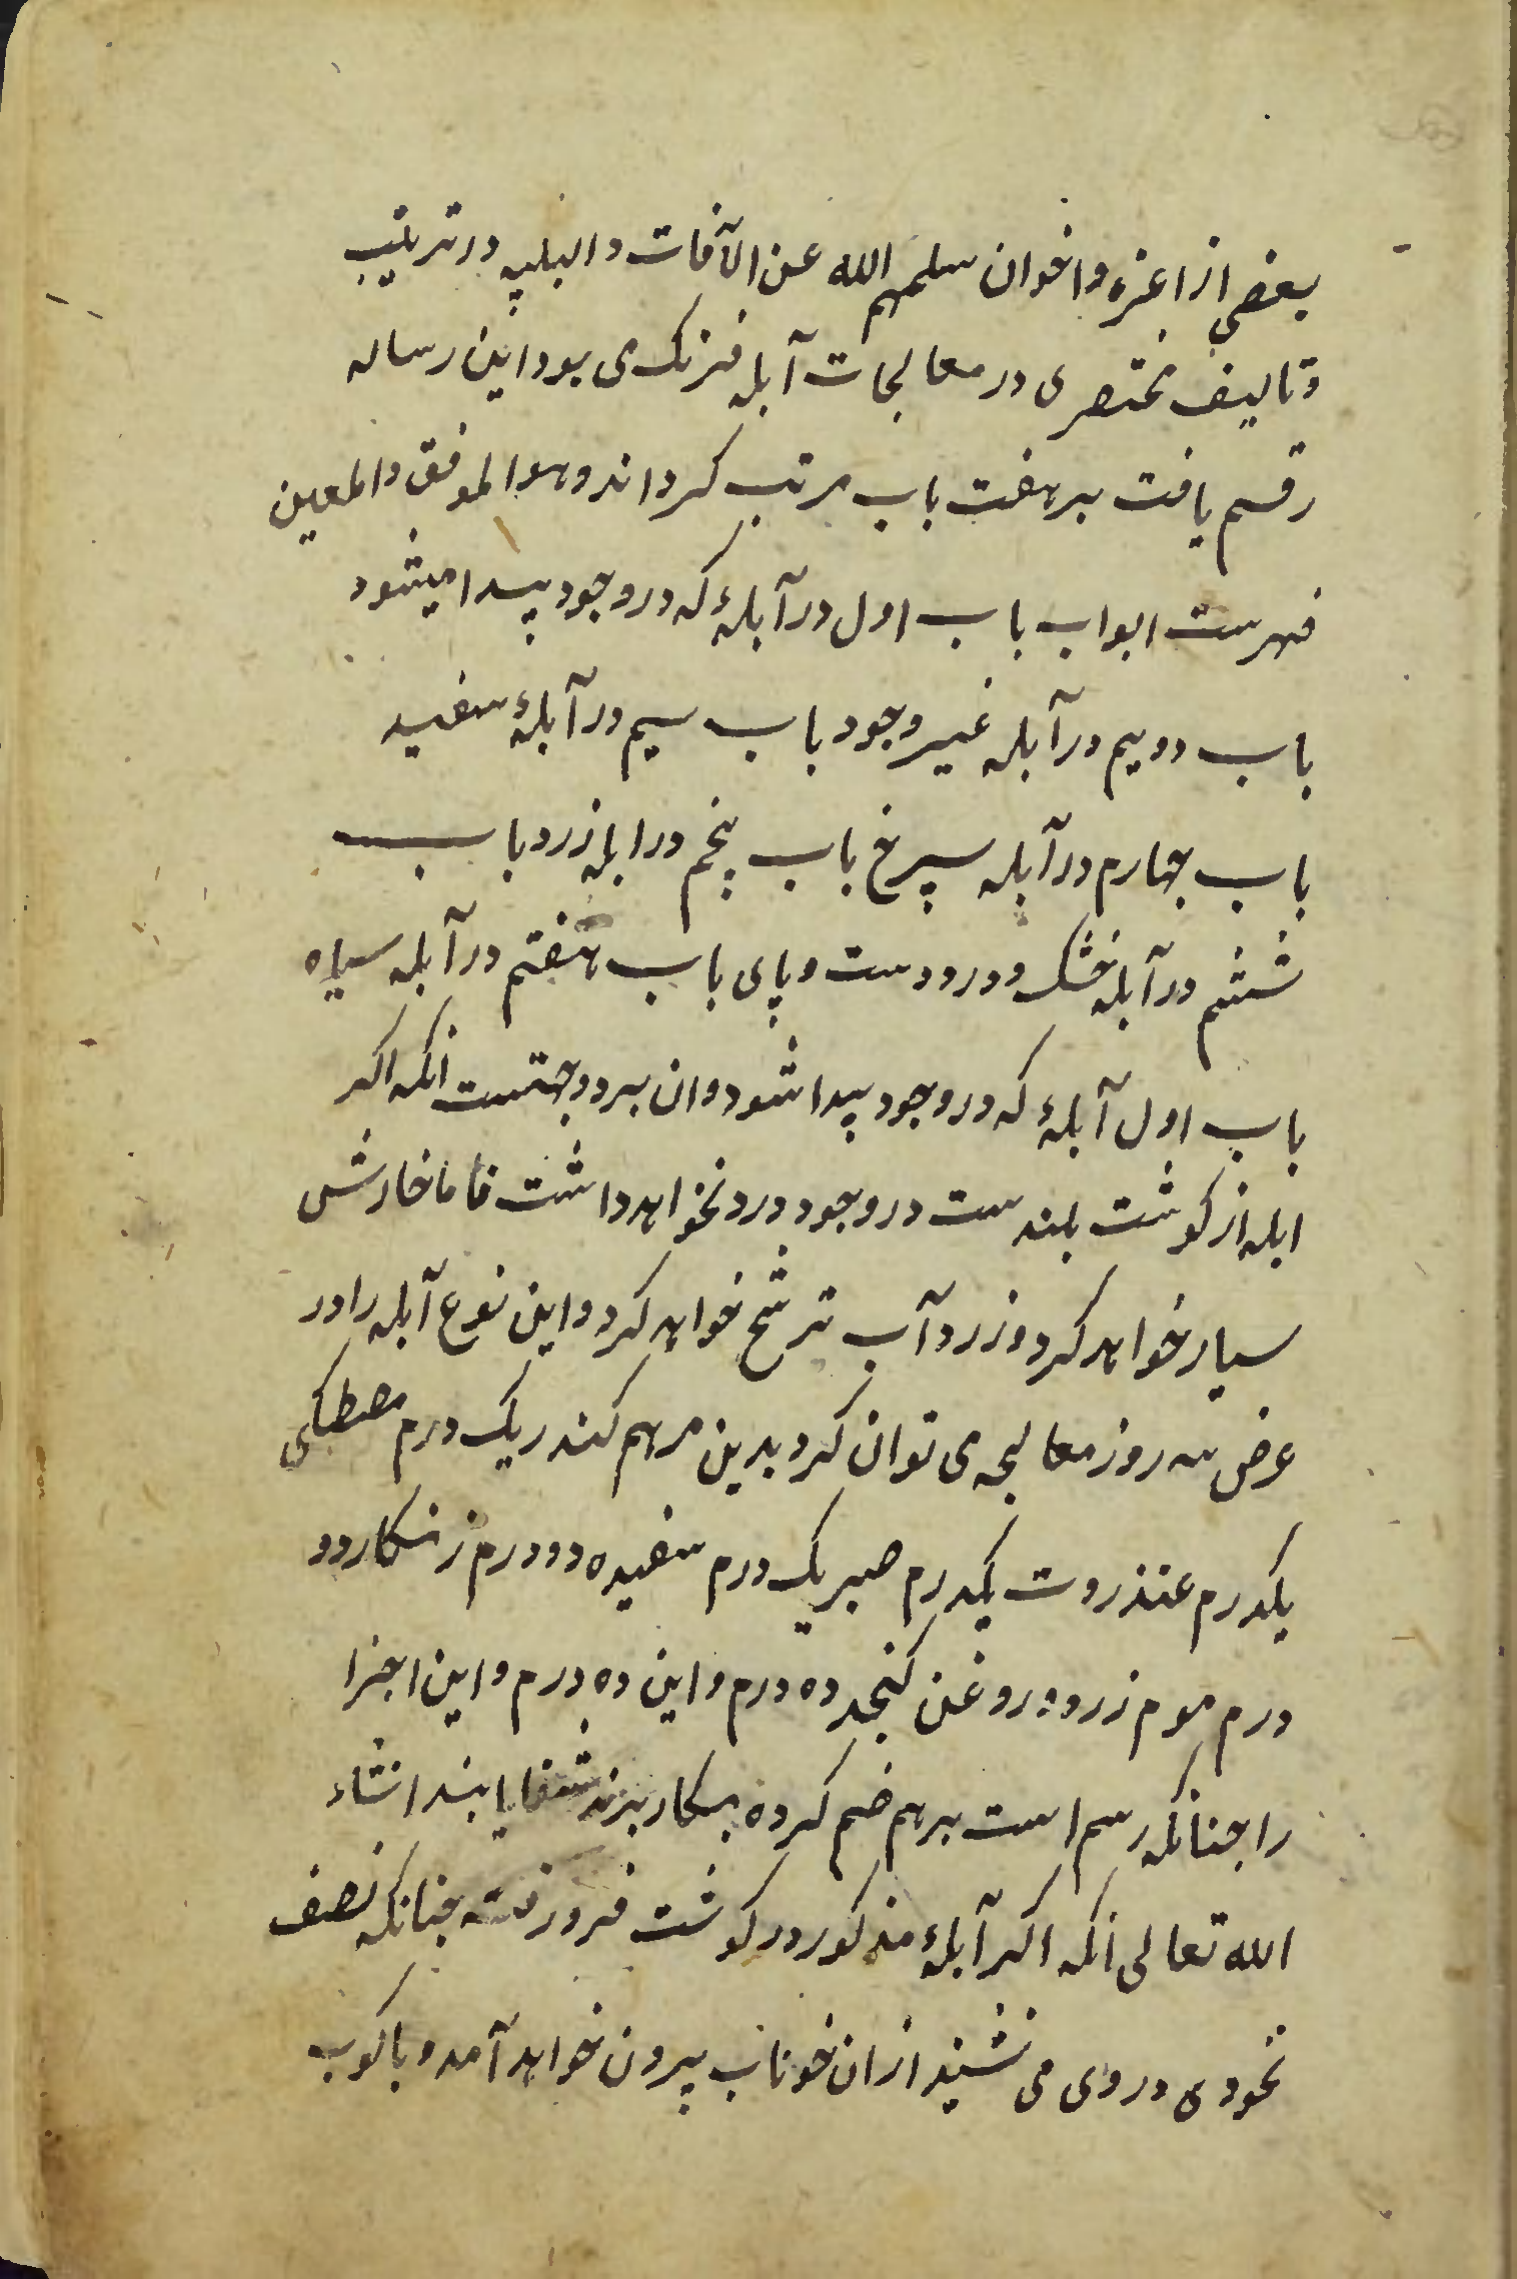 بعضی از اعزه و اخوان سلمهم الله عن الآفات و البلیه در ترتیب
و تالیف مختصری در معالجات آبله فرنک می بود این رساله
رقم یافت بر هفت باب مرتب کرداند و هوا لموفق والمعین
فهرست ابواب باب اول در آبلهٔ که در وجود پیدا میشود
باب دویم در آبله غیر وجود باب سیم در آبلهٔ سفید
باب جهارم در آبله سرخ باب پنجم در ابله زرد باب
ششم در آبله خشک و درد دست و پای باب هفتم در آبله سیاه
باب اول آبلهٔ که در وجود پیدا شود و ان بر دو جهتست انکه اکر
ابله از کوشت بلند ست در وجود درد نخواهد داشت فاما خارش
بسیار خواهد کرد و زرد آب ترشح خواهد کرد و این نوع آبله را در
عرض سه روز معالجه می توان کرد بدین مرهم کندر یک درم مصطکی
یکدرم عنذروت یکدرم صبر یک درم سفیده دو درم زنکار دو
درم موم زرد و روغن کنجد ده درم و این ده درم و این اجزا
را جنانکه رسم است برهم ضم کرده بکار برند شفا یابند انشاء
الله تعالی انکه اکر آبلهٔ مذکور در کوشت فرو رفته جنانکه نصف
نخودی در وی می نشیند از ان خوناب بیرون خواهد آمد و باکوب